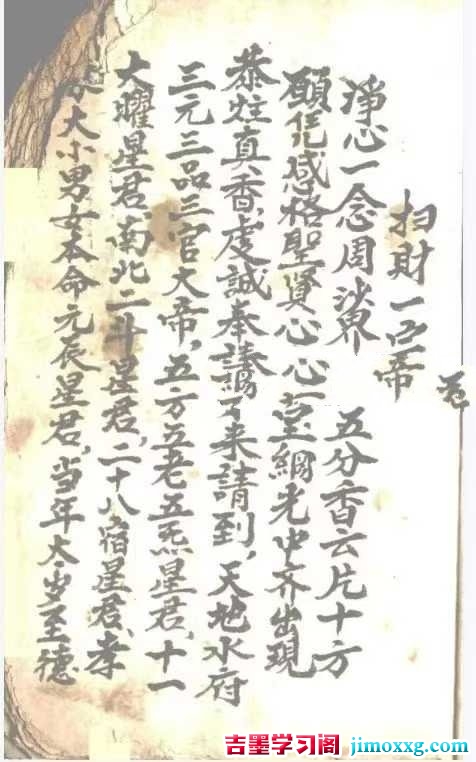 扫財一帝卷
淨心一念周沙界 五分香云片十方
願凭感格聖賢心心 網光中齐出現
恭炷真香,虔誠奉請,了来請到,天地水府
三元三品三官大帝,五方五老五炁星君,十一
大曜星君,南北二斗星君,二十八宿星君,孝
大小男女本命元辰星君,当年太岁至德
吉墨学习阁 jimoxxg.com